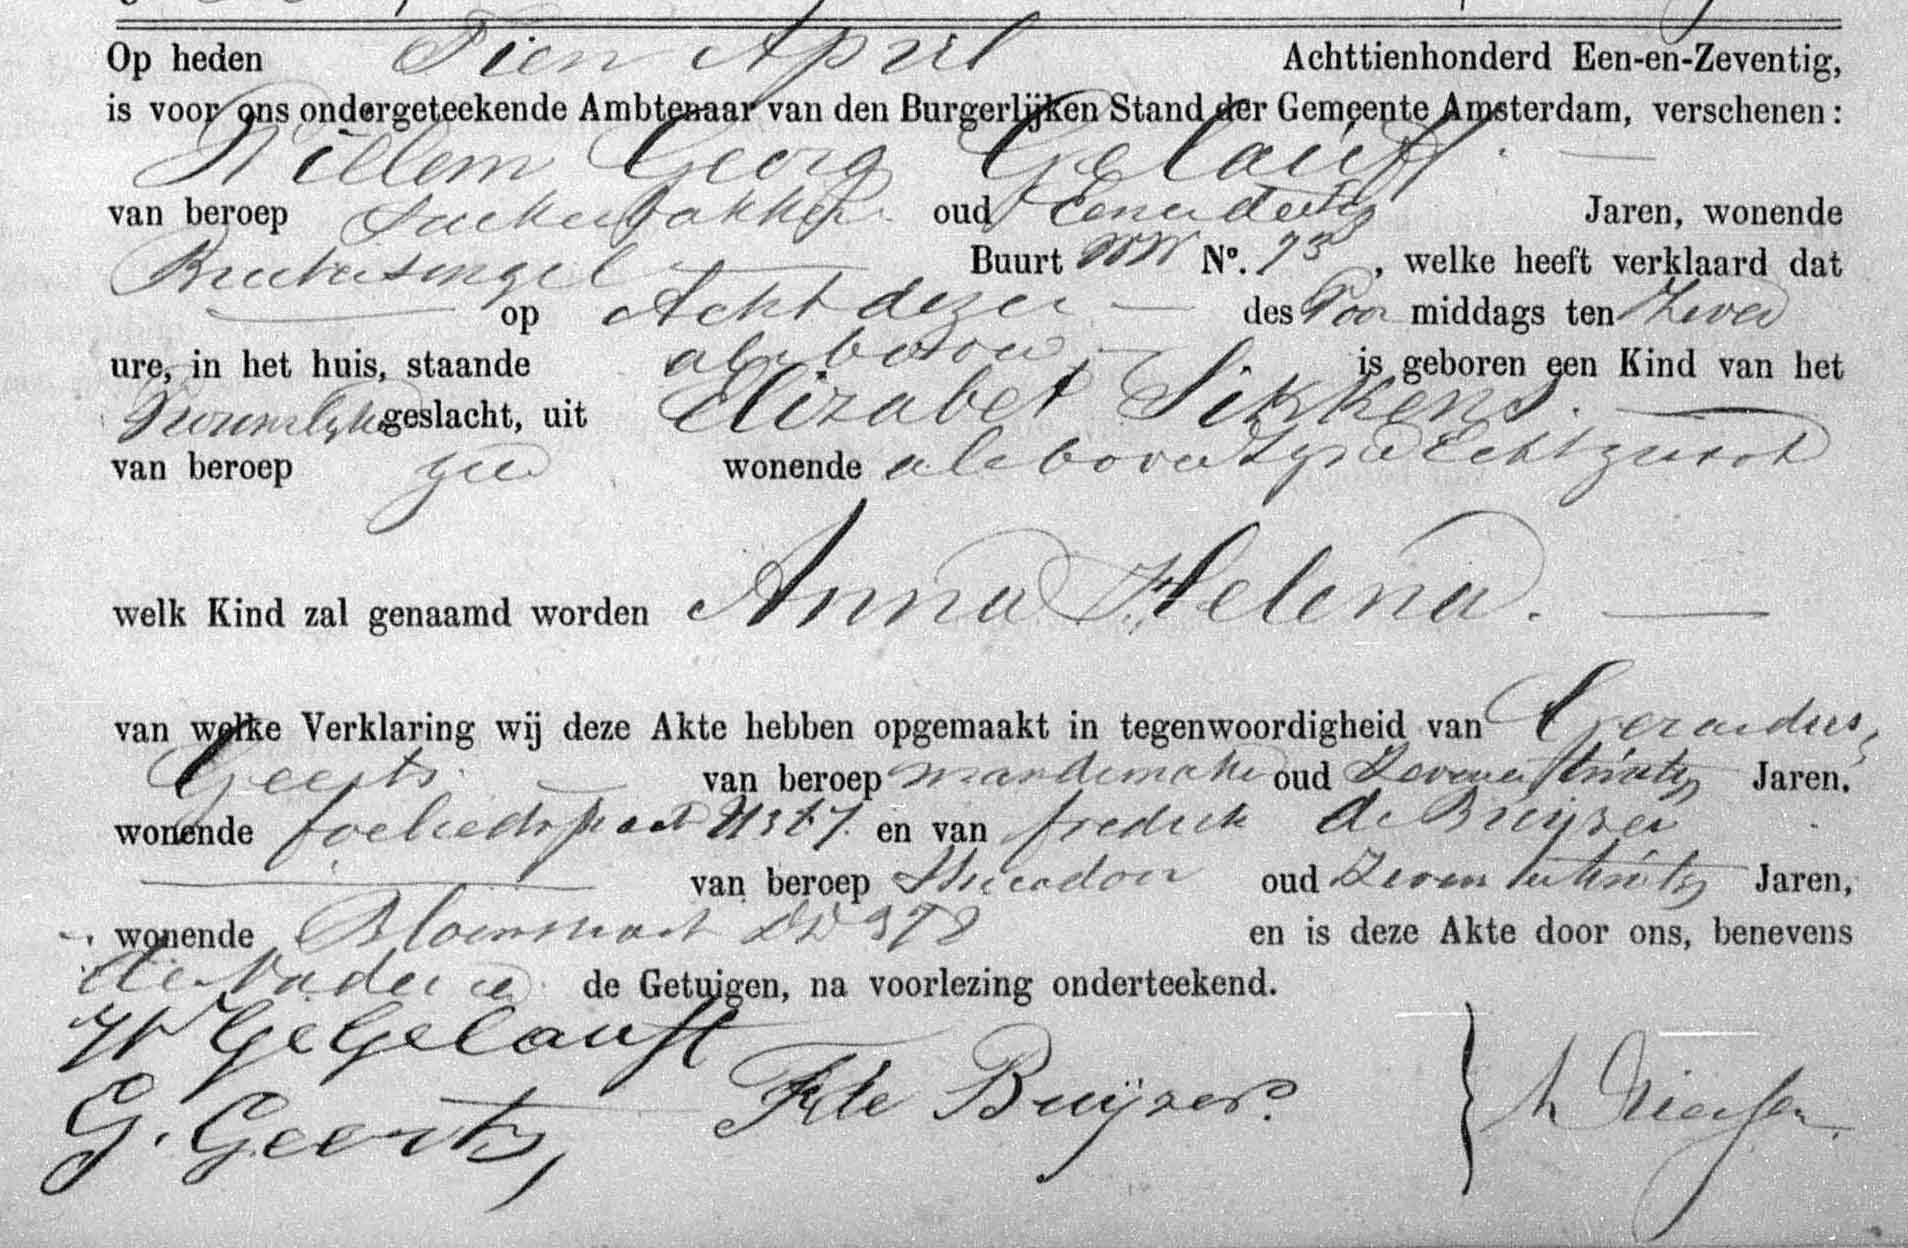 Op heden Tien April Achttienhonderd Een-en-Zeventig,
is voor ons ondergeteekende Ambtenaar van den Burgerlijken Stand der Gemeente Amsterdam, verschenen:
Willem Georg Gelauff.
van beroep Suikerbakker oud Eenendertig Jaren, wonende
Buitensingel Buurt WW No. 73, welke heeft verklaard dat
op Acht dezer des Voor middags ten Zeven
ure, in het huis, staande als boven is geboren een Kind van het
Vrouwelijke geslacht, uit Elizabet Sikkens.
van beroep wonende als boven zyne Echtgenoot
welk Kind zal genaamd worden Anna Helena.
van welke Verklaring wij deze Akte hebben opgemaakt in tegenwoordigheid van Gerardus
Geerts van beroep mandemaker oud Jaren,
wonende en van fredrik de Buijzer
van beroep oud Jaren,
wonende Bloemstraat en is deze Akte door ons, benevens
de Vader en de Getuigen, na voorlezing onderteekend.
W Ge Gelauff
G. Geerts, F de Buijzer.